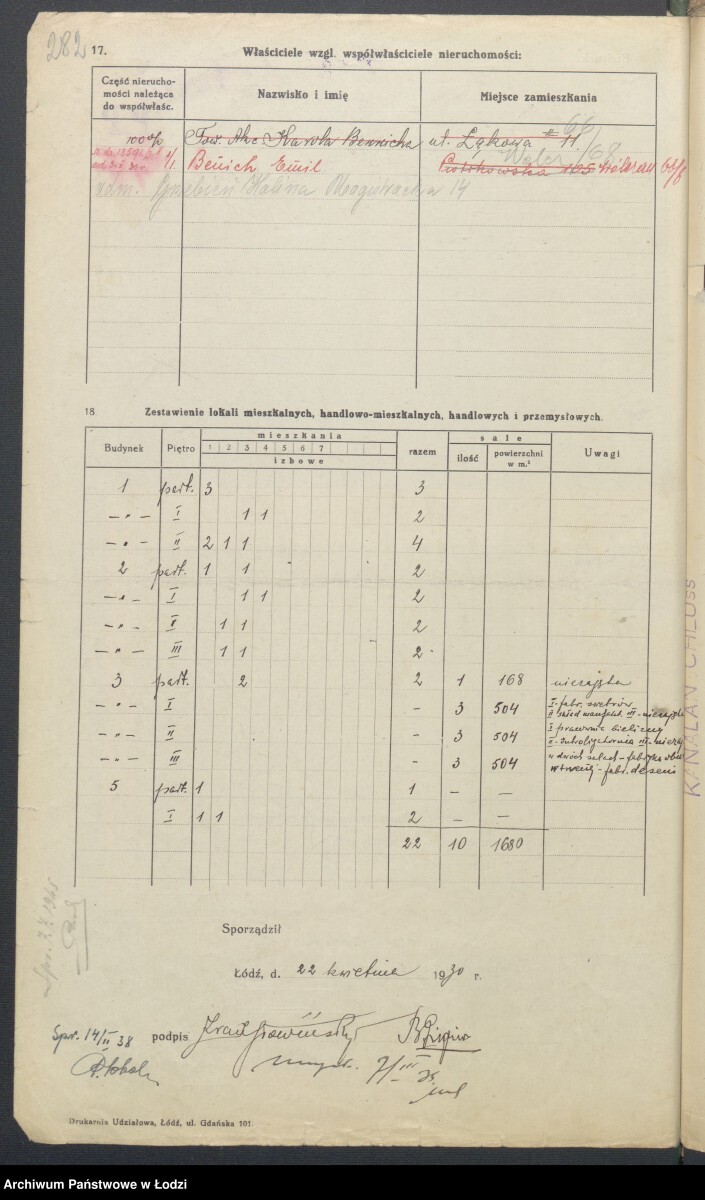 282
17. Właściciele wzgl. współwłaściciele nieruchomości:
Część nierucho-
mości należąca
do współwłaśc.
Nazwisko i imię
Miejsce zamieszkania
100% Tow. Akc. Karola Bennicha ul. Łąkowa № 11
1/1. Benich Emil Piotrkowska 165
adm. Halina 14
18. Zestawienie lokali mieszkalnych, handlowo-mieszkalnych, handlowych i przemysłowych.
Budynek Piętro mieszkania razem sale Uwagi
1 2 3 4 5 6 7
izbowe
ilość powierzchni w m.²
1 part. 3 3
—„— I 1 1 2
—„— II 2 1 1 4
2 part. 1 1 2
—„— I 1 1 2
—„— II 1 1 2
—„— III 1 1 2
3 part. 2 2 1 168 nieczynna
—„— I – 3 504 I-fabr. swetrów
—„— II – 3 504 I pracownia bielizny
—„— III – 3 504
5 part. 1 1 — —
I 1 1 2 — —
22 10 1680
Sporządził
Łódź, d. 22 kwietnia 1930 r.
Spr. 14/II 38 podpis
7/III 35
Spr. 1935
Drukarnia Udziałowa, Łódź, ul. Gdańska 101.
KANALAN CHLUSS
Archiwum Państwowe w Łodzi